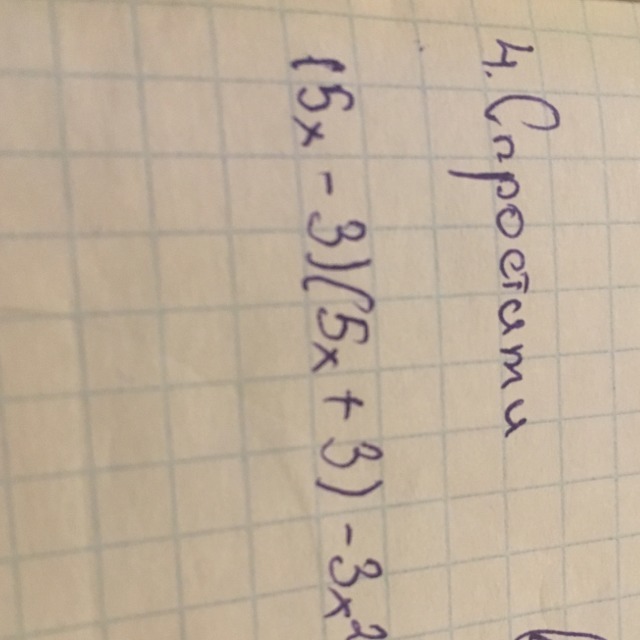 4. Спростити
(5x - 3)(5x + 3) - 3x²